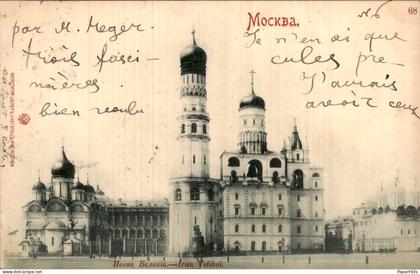 Москва.
68
N 6
par M. Meger
trois fasci-
nères.
bien voulu
Je n'en ai que
cules pre-
J'aurais
avoir ceux
Иванъ Великій.—Ivan Velikoi.